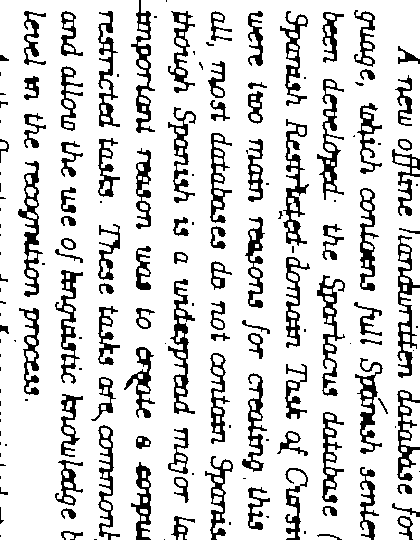 A new offline handwritten database for
guage, which contains full Spanish senten
been developed: the Spartacus database (
Spanish Restricted-domain Task of Cursiv
were two main reasons for creating this
all, most databases do not contain Spanis
though Spanish is a widespread major la
important reason was to create a corpu
restricted tasks. These tasks are common
and allow the use of linguistic knowledge b
level in the recognition process.